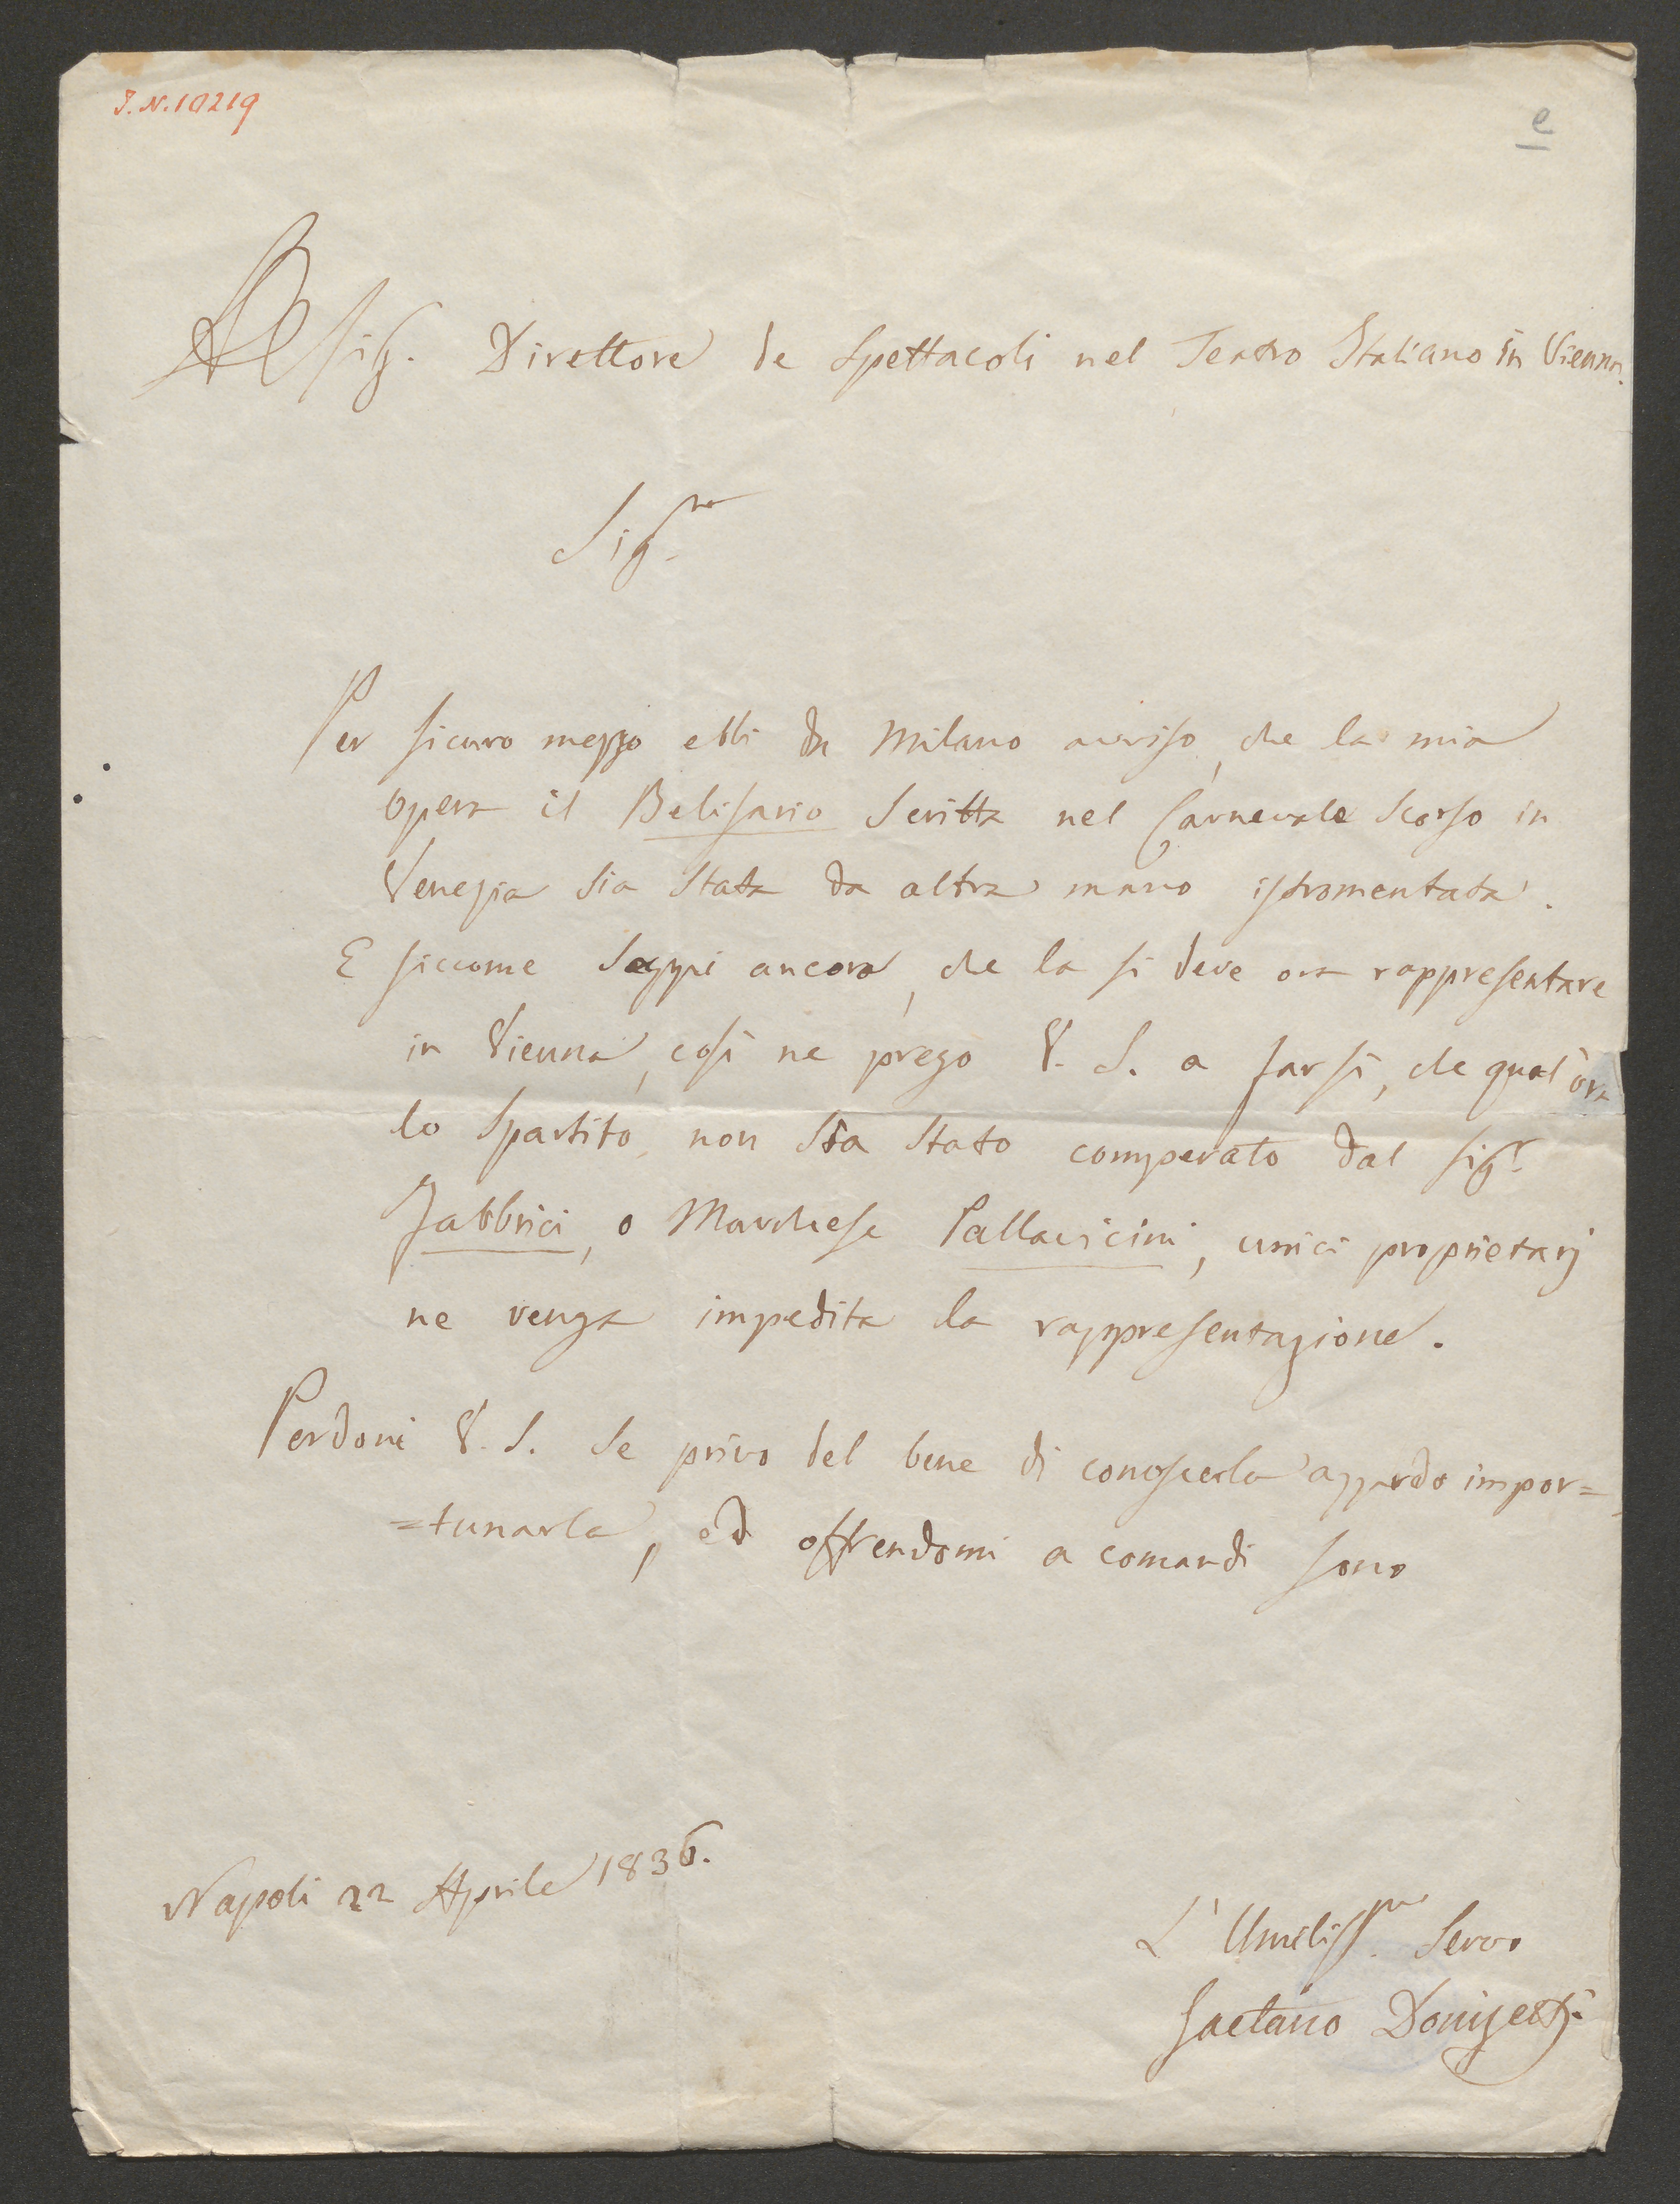 I.N.10219
e
Al Sig. Direttore de Spettacoli nel Teatro Italiano in Vienna.
Sig.re
Per sicuro mezzo ebbi da Milano avviso, che la mia
opera il Belisario scritta nel Carnevale scorso in
Venezia sia stata da altra mano istromentata.
E siccome seppi ancora, che la si deve ora rappresentare
in Vienna, così ne prego V. S. a far sì, che qual'ora
lo spartito non sia stato comperato dal Sig.r
Fabbrici, o Marchese Pallavicini, unici proprietarj
ne venga impedita la rappresentazione.
Perdoni V. S. se privo del bene di conoscerla azzardo impor=
=tunarla, ed offrendomi a comandi sono
Napoli 22 Aprile 1836.
L'Umiliss.mo Servo
Gaetano Donizetti